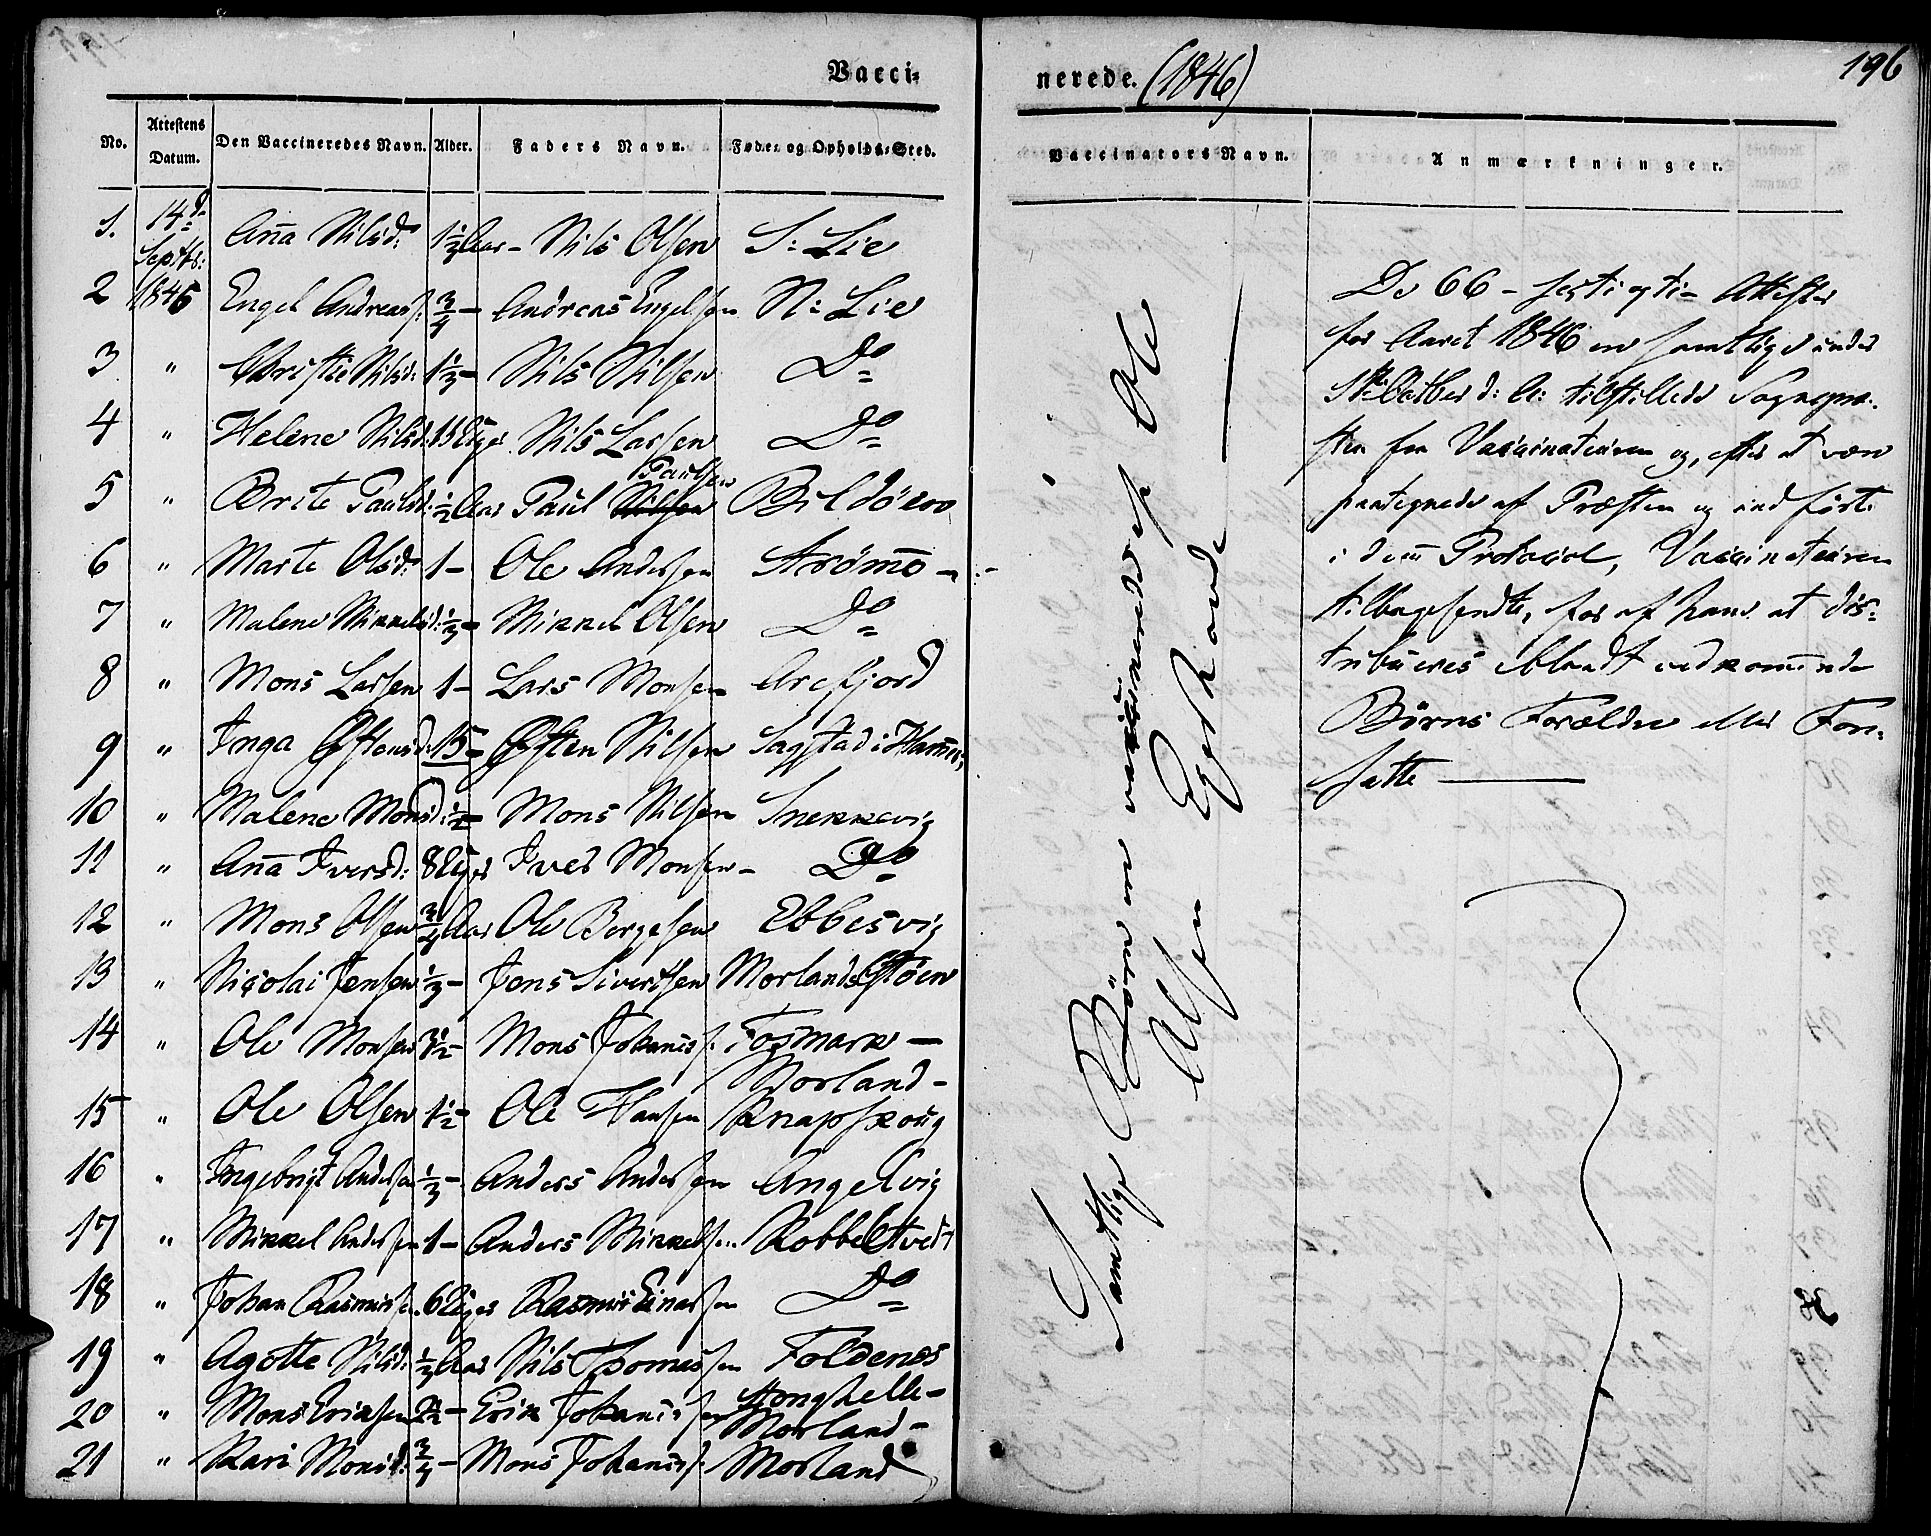 196
Vacci-
nerede. (1846)
No. Attestens Datum. Den Vaccineredes Navn. Alder. Faders Navn. Føde- og Opholds-Sted.
Vaccinators Navn. Anmærkninger.
1. 14d Septbr: Aña Nilsd: 1½ Aar - Nils Olsen S: Lie
2 1846 Engel Andreass: ¾ - Andreas Engelsen N: Lie
3 " Christie Nilsd: 1⅓ - Nils Nilsen Do
4 " Helene Nilsd: Uger Nils Larsen Do
5 " Brite Paulsd: ½ Aar Paul Paulsen Bildöen
6 " Marte Olsd: 1 - Ole Andersen Strømme -
7 " Malene Mikkelsd: ⅓ - Mikkel Olsen Do
8 " Mons Larsen 1 - Lars Monsen Arefjord
9 " Inga Østensd: 15 - Østen Nilsen Sagstad i Hammer
10 " Malene Monsd: ½ - Mons Nilsen Snekkevig
11 " Aña Iversd: 8 Uger Iver Monsen - Do
12 " Mons Olsen ¾ Aar Ole Børgesen Ebbesvig
13 " Nicolai Jensen ⅓ - Jens Sivertsen Morlands Støen
14 " Ole Monsen ½ - Mons Johaness: Fosmark -
15 " Ole Olsen 1½ - Ole Hansen Morland - Knapskoug
16 " Ingebrigt Andersen ⅓ - Anders Andersen Angelvig
17 " Mikkel Andersen 1 - Anders Mikkelsen Kobbeltvedt
18 " Johan Rasmussen 6 Uger Rasmus Einarsen Do
19 " Agótte Nilsd: ½ Aar Nils Thomessen Foldenes
20 " Mons Eriksen 2½ - Erik Johannessen Honghelle - Morland -
21 " Kari Monsd: ¾ - Mons Johaness: Morland
Samtlige Børn ere vaccinerede af Ole
Olsen Eeghovde
De 66 - sexti og ti - Attester
for Aaret 1846 ere samtlige under
October d: A: tilstillede Sognepræ-
sten fra Vaccinateuren og, efter at være
paategnede af Præsten og indførte
i den Protocol, Vaccinateuren
tilbagesendte, for af ham at dis-
tribueres iblandt vedkommende
Børns Forældre eller Fore-
satte